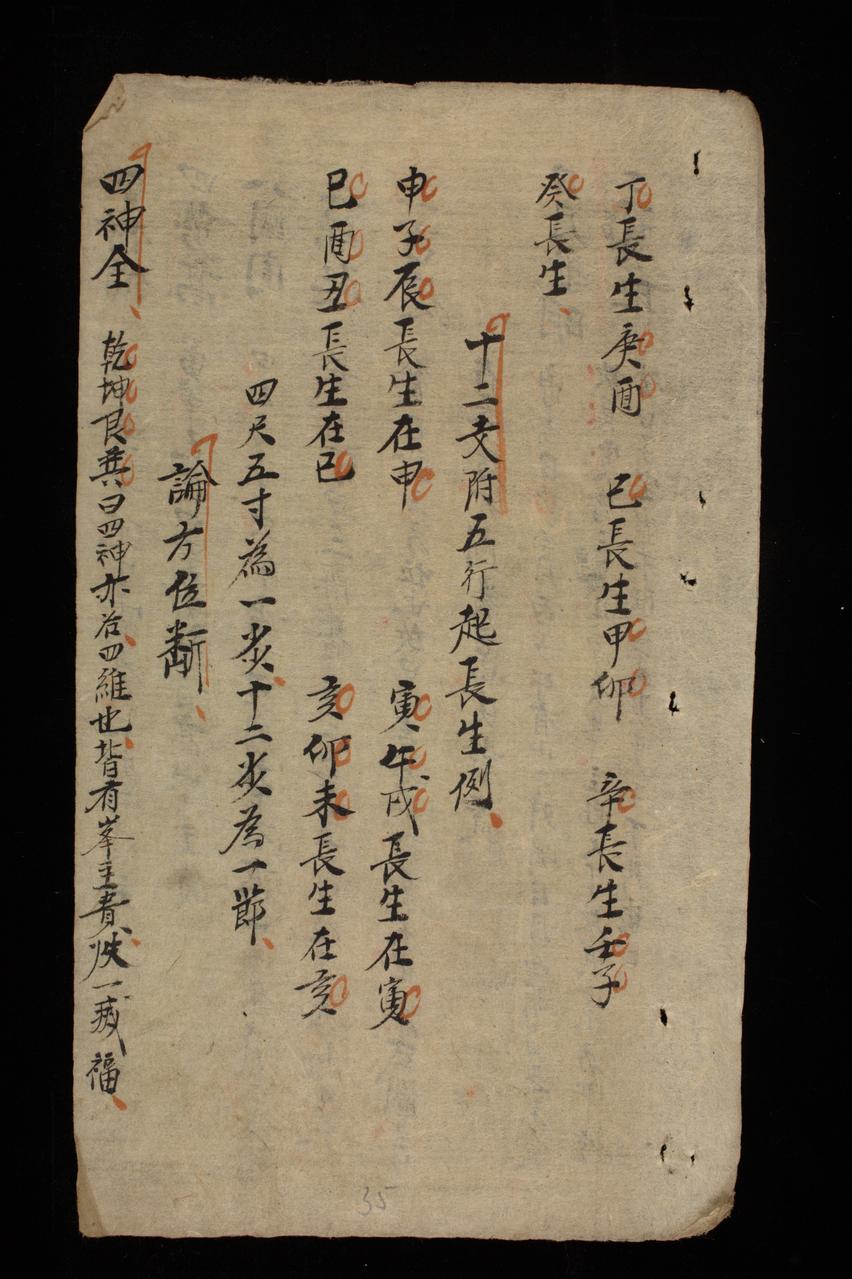 丁長生庚酉　己長生甲卯　辛長生壬子
癸長生
十二支附五行起長生例
申子辰長生在申　寅午戌長生在寅
巳酉丑長生在巳　亥卯未長生在亥
四尺五寸為一步十二步為一節
論方位斷
四神全　乾坤艮巽曰四神亦名四維也皆有峯主貴缺一減福
35